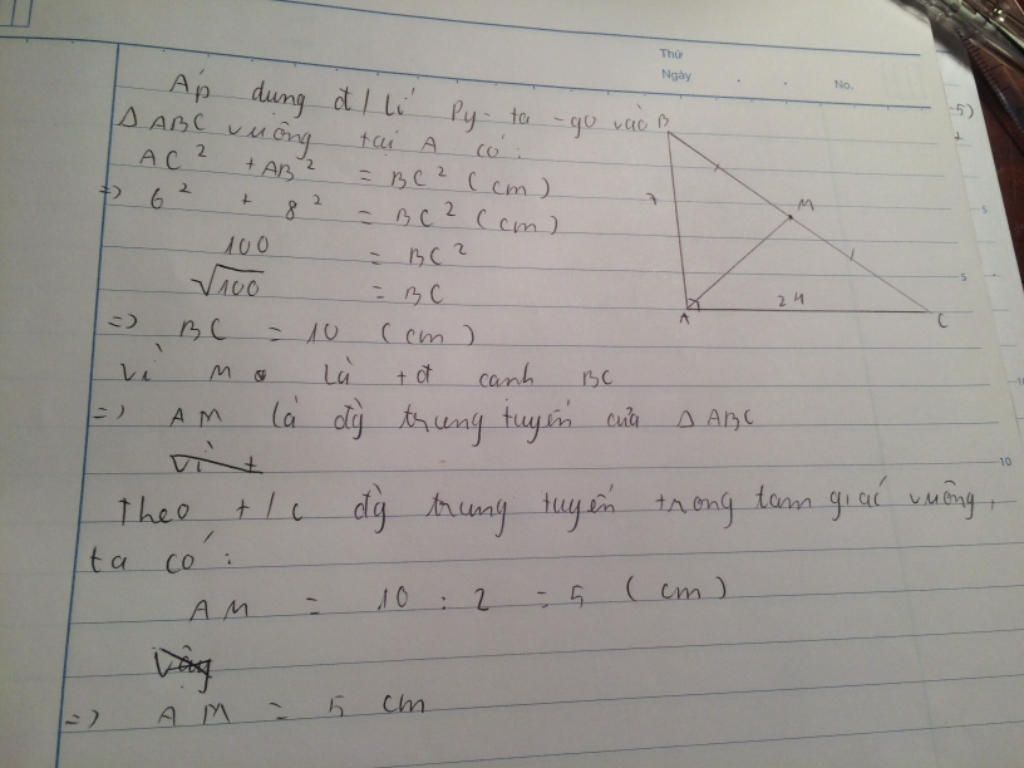 Thứ
Ngày
No.
Áp dung đ/lí Py-ta-go vào
Δ ABC vuông tại A có:
AC² + AB² = BC² (cm)
=> 6² + 8² = BC² (cm)
100 = BC²
√100 = BC
=> BC = 10 (cm)
Vì M là tđ canh BC
=> AM là đg̀ trung tuyến của Δ ABC
Vì t
Theo t/c đg̀ trung tuyến trong tam giác vuông,
ta có:
AM = 10 : 2 = 5 (cm)
Vậy
=> AM = 5 cm
B
M
7
A
24
C
-5)
5
5
10